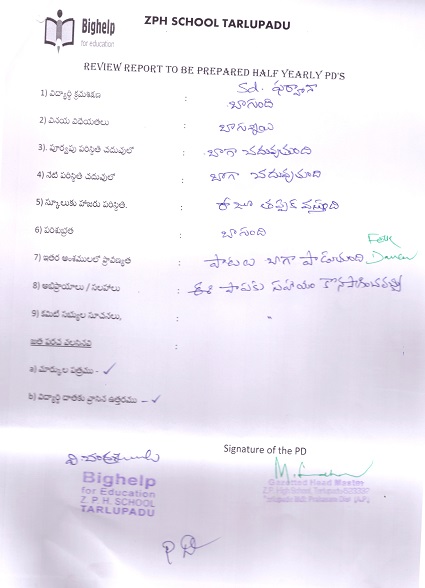 Bighelp
for education
ZPH SCHOOL TARLUPADU
REVIEW REPORT TO BE PREPARED HALF YEARLY PD'S
Sd.
1) విద్యార్థి క్రమశిక్షణ : బాగుంది
2) వినయ విధేయతలు : బాగున్నాయి
3). పూర్వపు పరిస్థితి చదువులో : బాగా చదువుతుంది
4) నేటి పరిస్థితి చదువులో : బాగా చదువుతుంది
5) స్కూలుకు హాజరు పరిస్థితి. : తప్పక వస్తుంది
6) పరిశుభ్రత : బాగుంది
Folk
7) ఇతర అంశములలో ప్రావీణ్యత : పాటలు బాగా పాడుతుంది Dance
8) అభిప్రాయాలు / సలహాలు : ఈ పాపకు సహాయం కొనసాగించవచ్చు
9) కమిటీ సభ్యుల సూచనలు, :
ఇతర పరచ వలసినవి :
a) మార్కుల పత్రము - ✓
b) విద్యార్థి దాతకు వ్రాసిన ఉత్తరము - ✓
Signature of the PD
Bighelp
for Education
Z. P. H. SCHOOL
TARLUPADU
Gazetted Head Master
Z.P. High School, Tarlupadu
PD